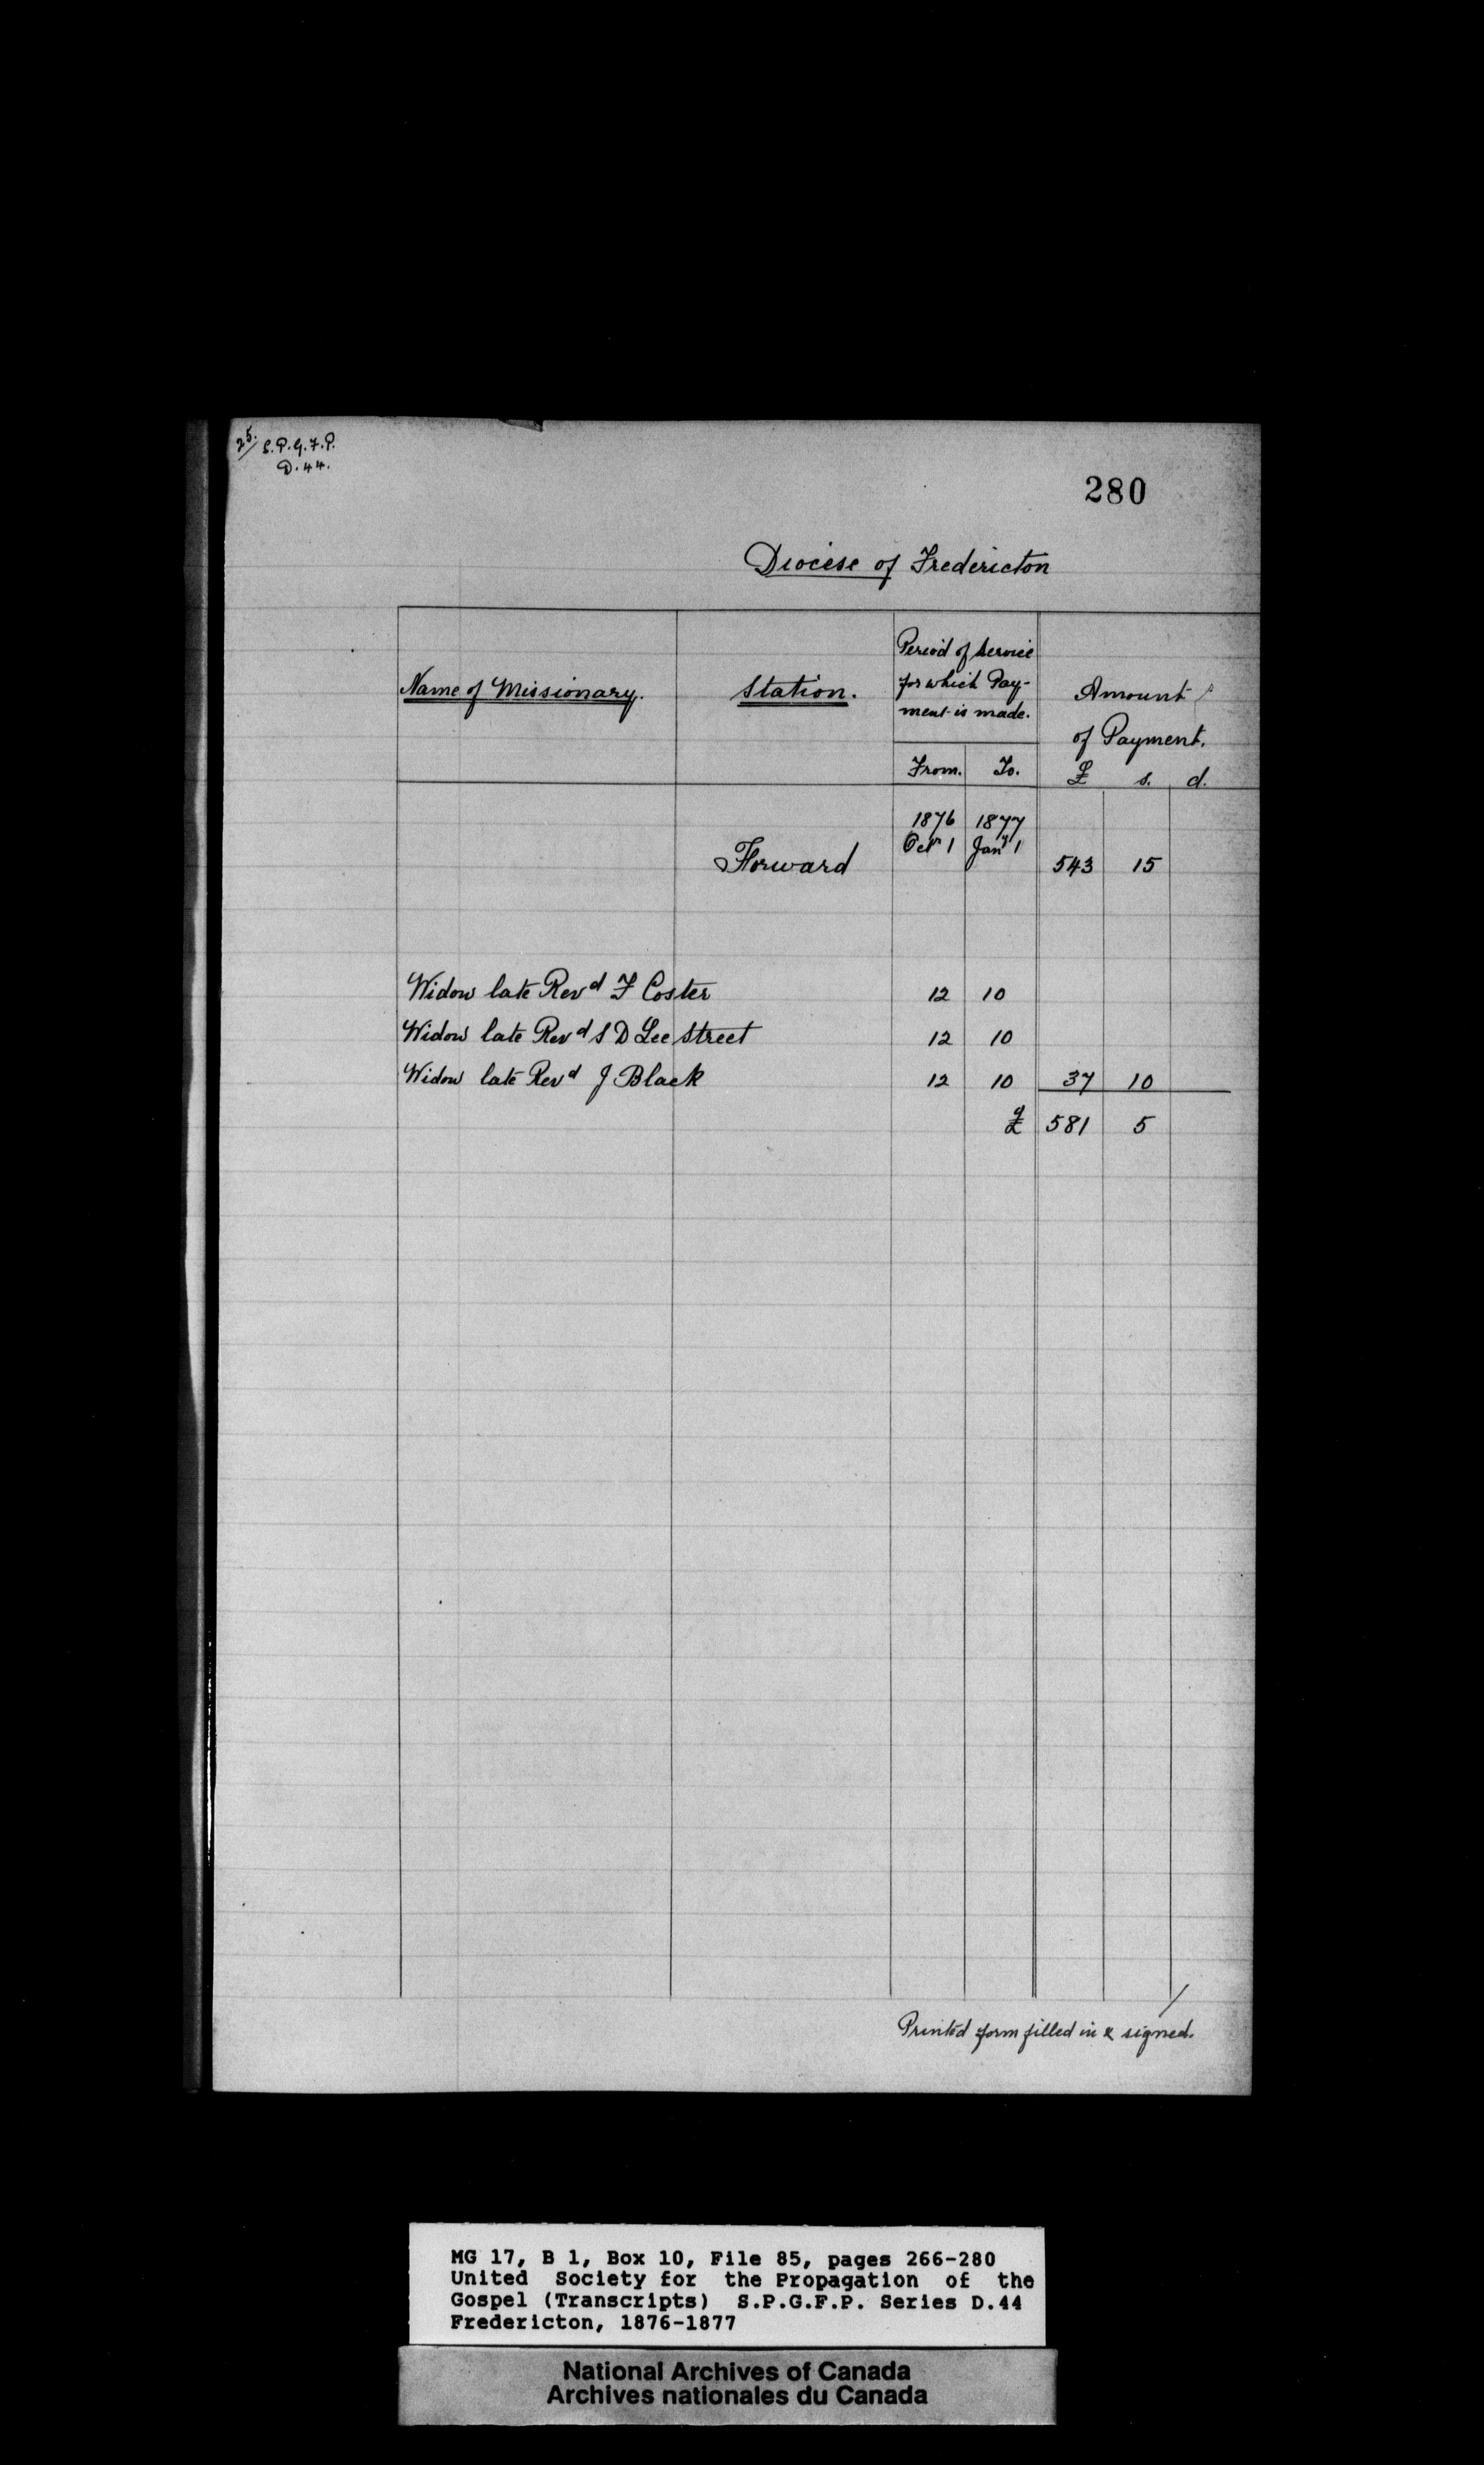 25/ S.P.G.F.P.
D.44.
280
Diocese of Fredericton
Name of Missionary.
Station.
Period of Service
for which Pay-
ment is made.
From. To.
Amount
of Payment.
£ s. d.
1876 1877
Octr 1 Jany 1
Forward 543 15
Widow late Revd F Coster 12 10
Widow late Revd S D Lee Street 12 10
Widow late Revd J Black 12 10 37 10
£ 581 5
Printed form filled in & signed.
MG 17, B 1, Box 10, File 85, pages 266-280
United Society for the Propagation of the
Gospel (Transcripts) S.P.G.F.P. Series D.44
Fredericton, 1876-1877
National Archives of Canada
Archives nationales du Canada